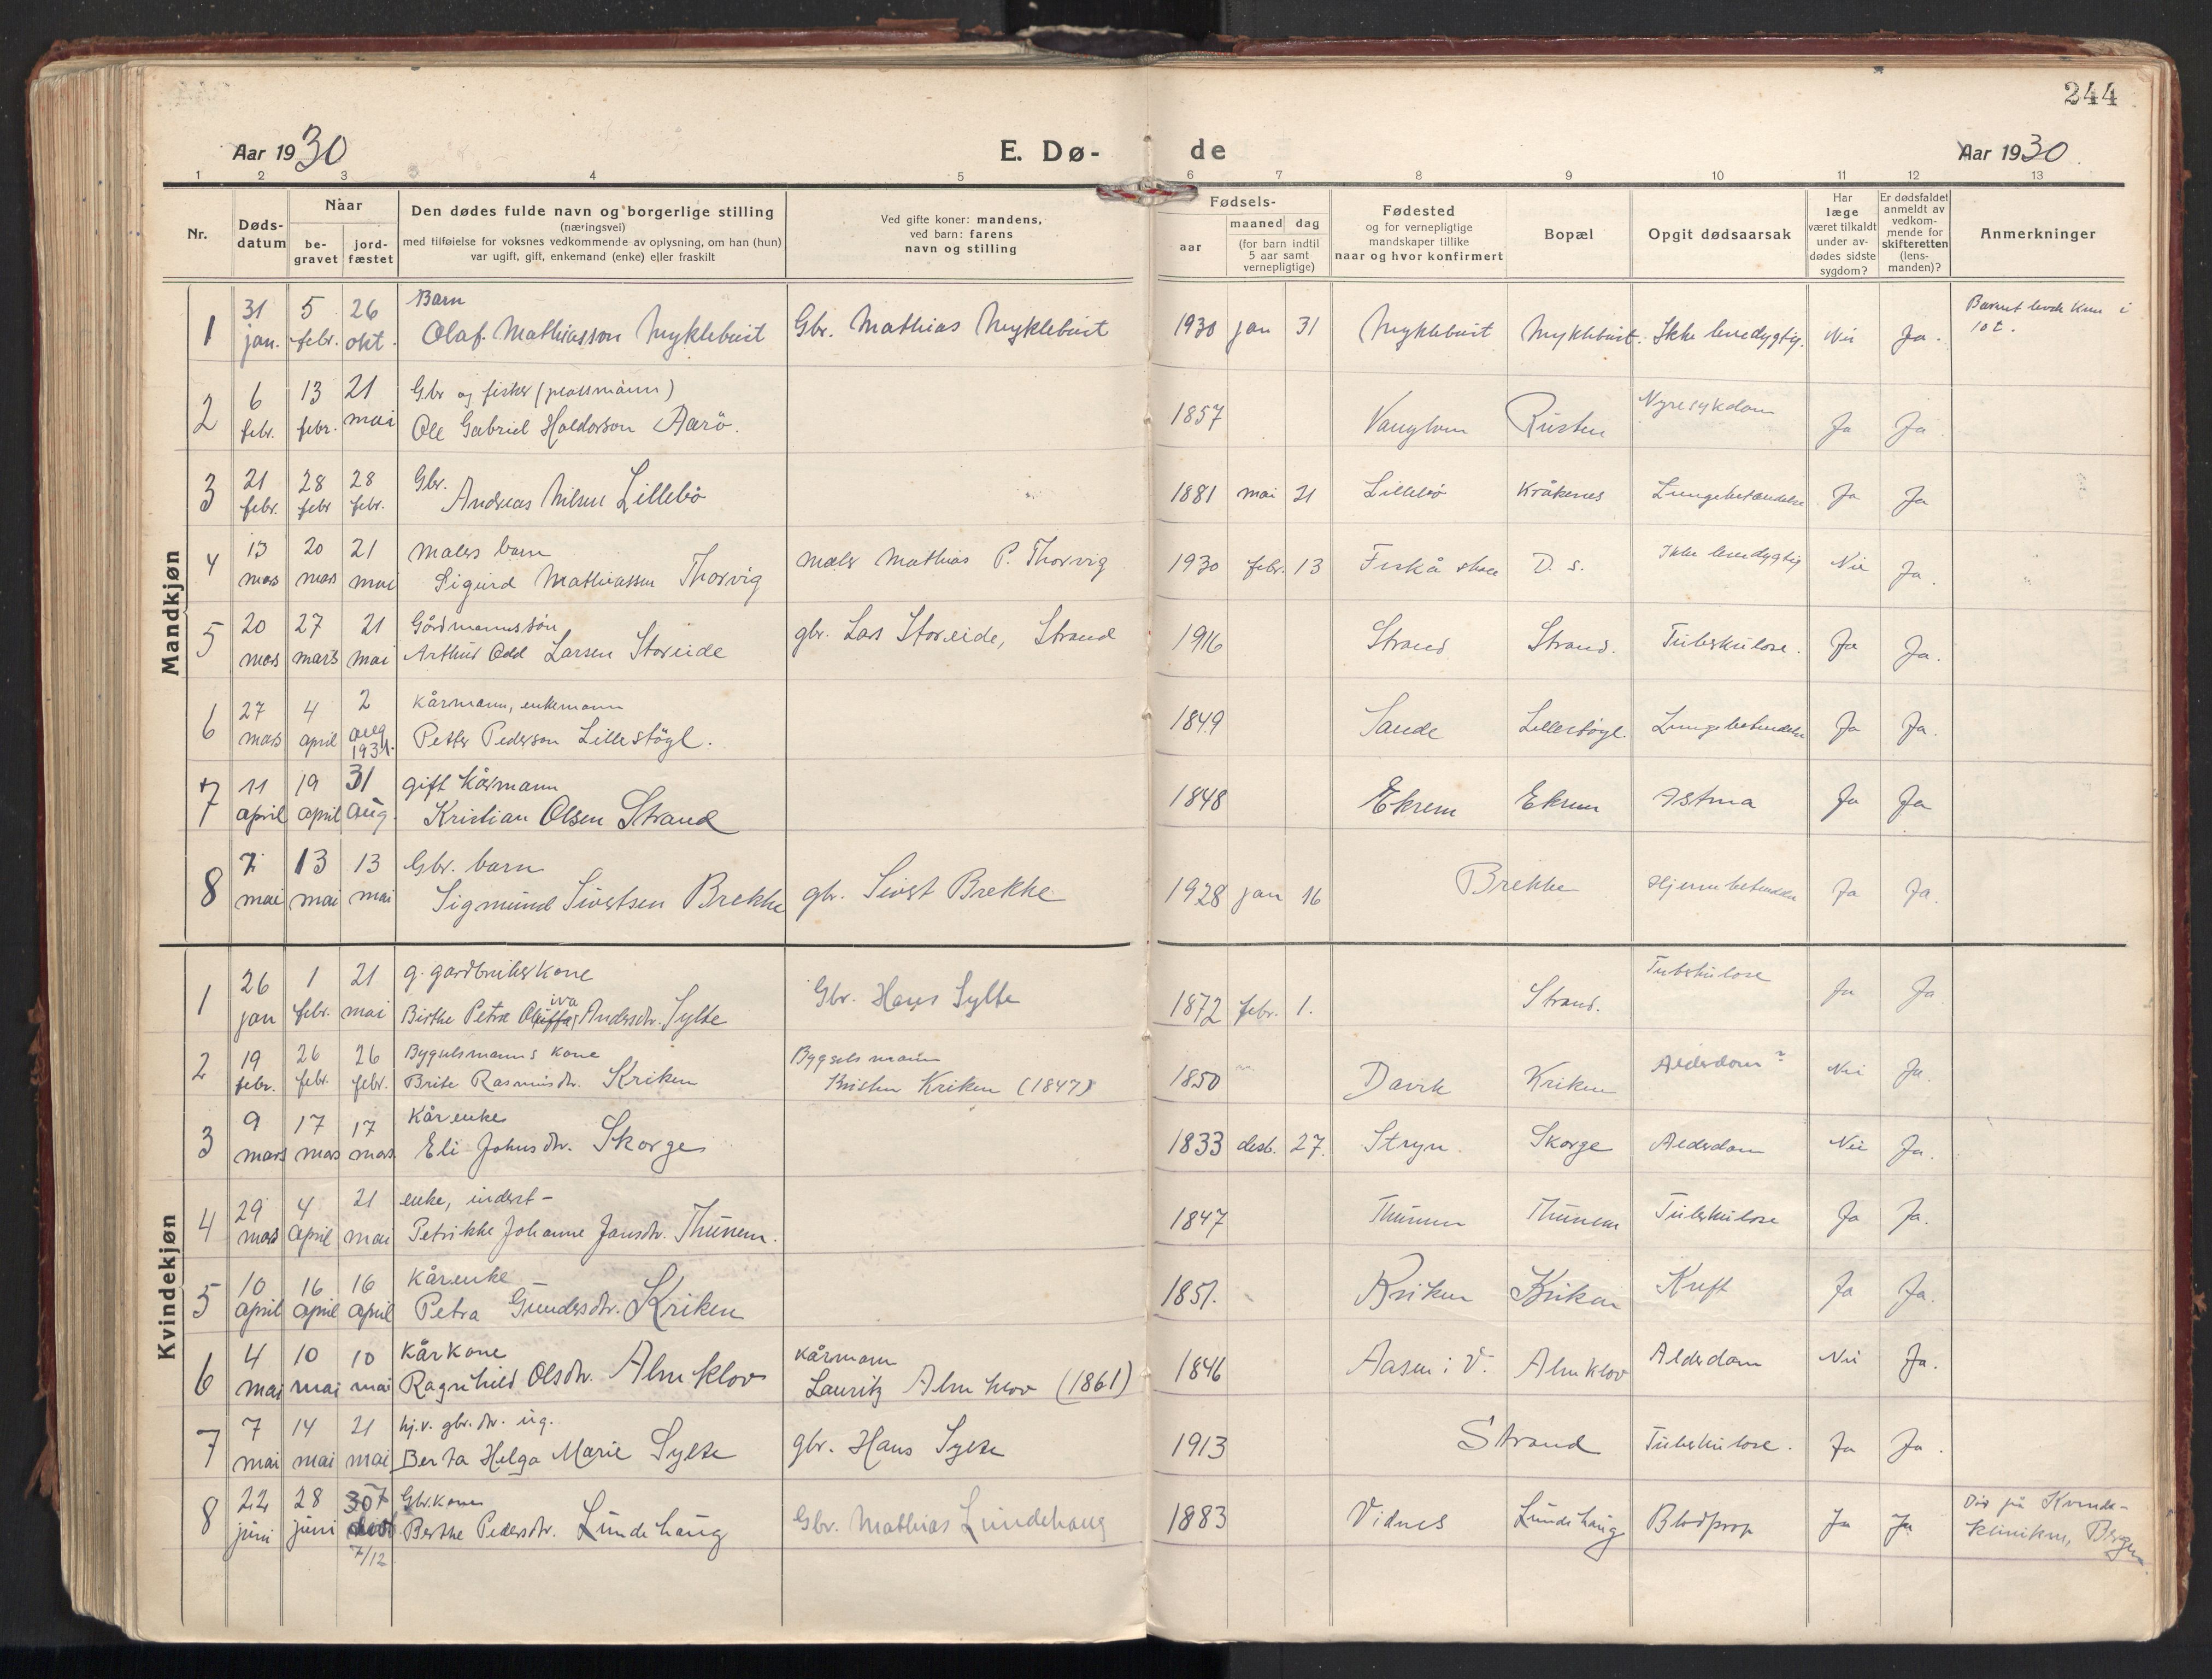 244
Aar 1930
E. Dø-
de
Aar 1930.
1 2 3 4 5 6 7 8 9 10 11 12 13
Nr.
Døds-
datum
Naar
be-
gravet
jord-
fæstet
Den dødes fulde navn og borgerlige stilling
(næringsvei)
med tilføielse for voksnes vedkommende av oplysning, om han (hun)
var ugift, gift, enkemand (enke) eller fraskilt
Ved gifte koner: mandens,
ved barn: farens
navn og stilling
Fødsels-
aar
maaned dag
(for barn indtil
5 aar samt
vernepligtige)
Fødested
og for vernepligtige
mandskaper tillike
naar og hvor konfirmert
Bopæl
Opgit dødsaarsak
Har
læge
været tilkaldt
under av-
dødes sidste
sygdom?
Er dødsfaldet
anmeldt av
vedkom-
mende for
skifteretten
(lens-
manden)?
Anmerkninger
Mandkjøn
1 31 jan. 5 febr. 26 okt. Barn
Olaf Mathiasson Myklebust Gbr. Mathias Myklebust 1930 jan 31 Myklebust Myklebust. Ikke levedygtig. Nei Ja. Barnet levde kun i
10 t.
2 6 febr. 13 febr. 21 mai Gbr og fisker (plassmann)
Ole Gabriel Haldorson Aarö. 1857 Rusten Nyresykdom Ja Ja
3 21 febr. 28 febr 28 febr. Gbr.
Andreas Nilsen Lillebö 1881 mai 21 Lillebö Kråkenes Lungebetændelse Ja Ja
4 13 mars 20 mars 21 mai malers barn
Sigurd Mathiassen Thorvig maler Mathias P. Thorvig 1930 febr. 13 Fiskå D. s. Ikke levedygtig Nei Ja.
5 20 mars 27 mars 21 mai Gårdmannssön
Arthur Odd Larsen Storeide gbr. Lars Storeide, Strand 1916 Strand Strand. Tuberkulose. Ja Ja.
6 27 mars 4 april 2 aug 1931. Kårmann, enkemann
Petter Pederson Lillestögl. 1849 Sande Lillestögl. Lungebetendelse Ja Ja.
7 11 april 19 april 31 aug. gift Kårmann
Kristian Olsen Strand 1848 Ekrem Ekrem Astma Ja Ja
8 7. mai 13 mai 13 mai Gbr. barn
Sigmund Sivertsen Brekke gbr. Sivert Brekke 1928 jan 16 Brekke Hjernebetendelse Ja Ja.
Kvindekjøn
1 26 jan 1 febr. 21 mai g. gardbrukerkone
iva
Birthe Petra Andersdtr. Sylte Gbr. Hans Sylte 1872 febr. 1. Strand. Tuberkulose Ja Ja
2 19 febr. 26 febr. 26 febr. Bygselsmanns kone
Brite Rasmusdtr. Kriken Bygselsmann
Kristen Kriken (1847) 1850 Davik Kriken Alderdom? Nei Ja.
3 9 mars 17 mars 17 mars Kårenke
Eli Johnsdtr. Skorge 1833 desb. 27. Stryn. Skorge Alderdom Nei Ja.
4 29 mars 4 april 21 mai enke, inderst-
Petrikke Johanne Jansdtr. Thunem. 1847 Thunem Thunem Tuberkulose Ja Ja.
5 10 april 16 april 16 april Kårenke
Petra Gundersdtr. Kriken 1851. Kriken Kriken Kreft Ja Ja.
6 4 mai 10 mai 10 mai Kårkone
Ragnhild Olsdtr. Almklov Kårmann
Lauritz Almklov (1861) 1846 Aasen i V. Almklov Alderdom Nei Ja.
7 7 mai 14 mai 21 mai hj.v. gbr.dtr. ug.
Berta Helga Marie Sylte gbr. Hans Sylte 1913 Strand Tuberkulose. Ja Ja.
8 22 juni 28 juni 7/12 Gbr.kone
Berthe Pedersdtr. Lundehaug Gbr. Mathias Lundehaug 1883 Vidnes Lundehaug Blodprop Ja Ja Død på Kvinde-
klinikken, Bergen